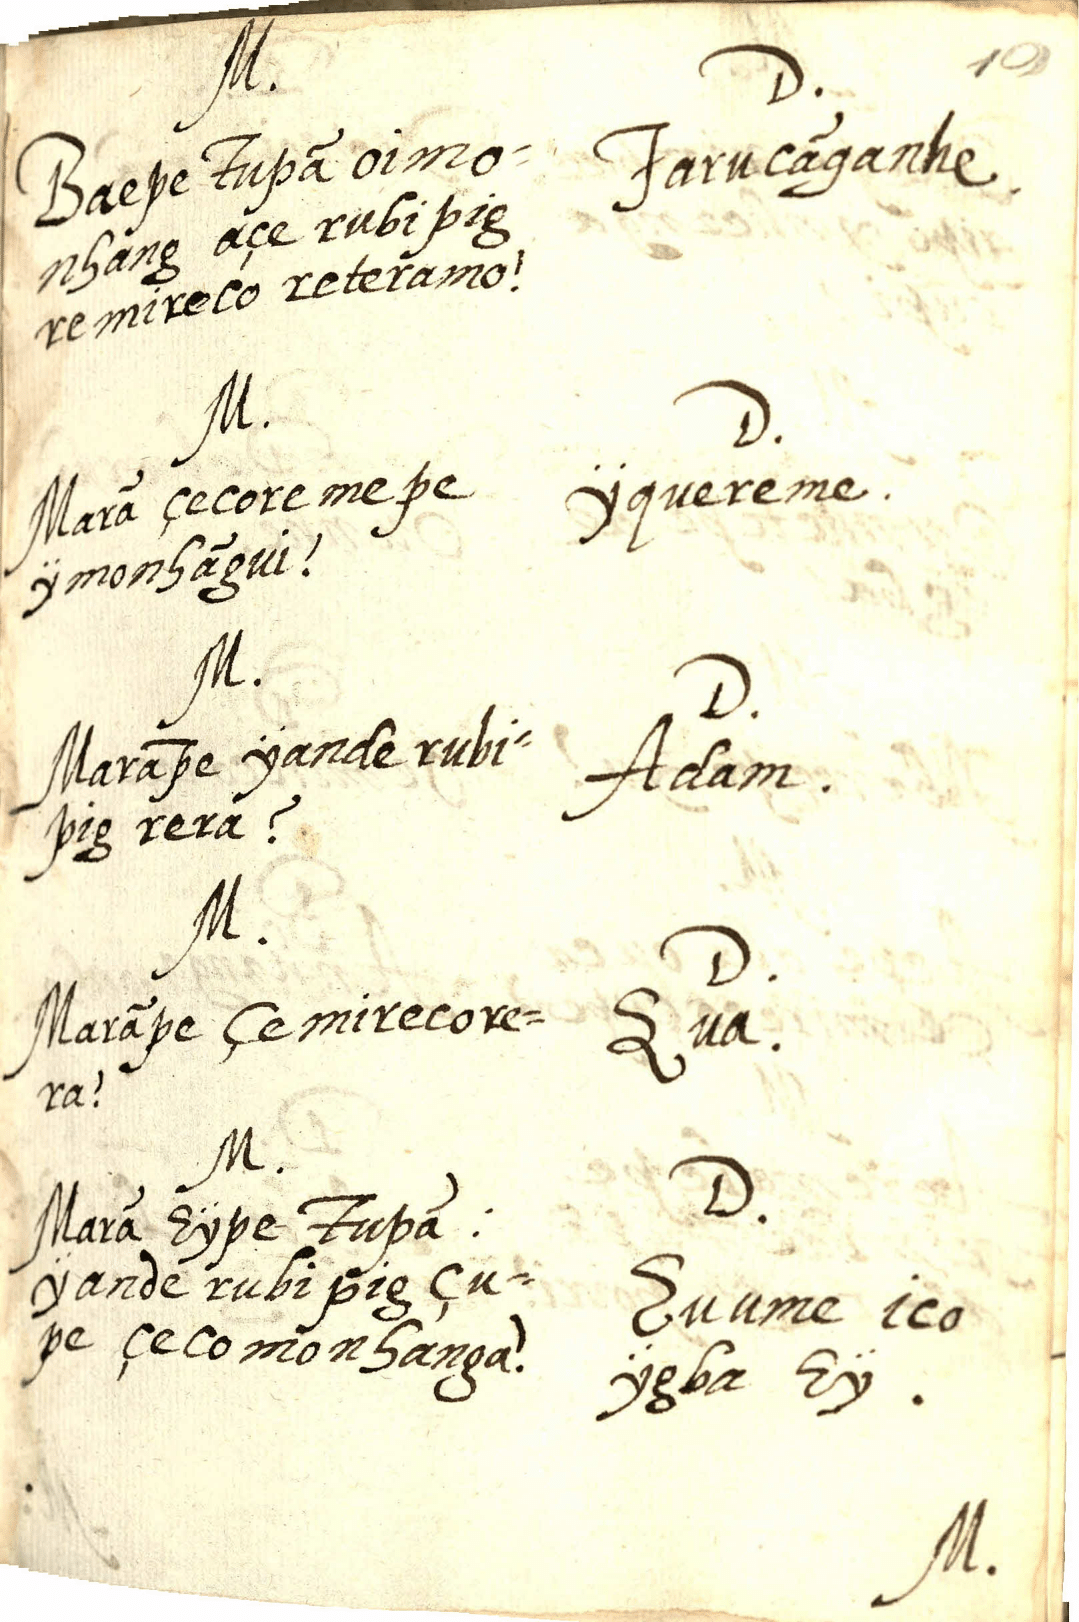 10
M.
Baepe Tupã oimo=
nhang açe rubipig
remireco reteramo?
D.
Jarucãganhe.
M.
Marã çecoreme pe
ÿmonhãgui?
D.
Ÿquereme.
M.
Marãpe ÿande rubi=
pig rera?
D.
Adam.
M.
Marãpe Çemirecore=
ra?
D.
Eua.
M.
Marã Eÿpe Tupã :
ÿande rubipig Çu=
pe çecomonhanga?
D.
Euume ico
ÿgba Eÿ.
M.